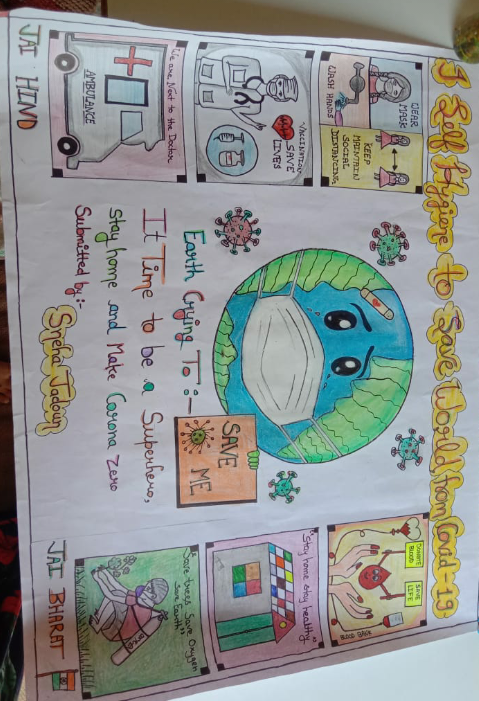 I Self Hygiene to Save World from Covid-19
WEAR
MASK
WASH HANDS
KEEP
MAINTAIN
SOCIAL
DISTANCING
VACCINATION
SAVE
LIVES
We are Next to the Doctor
AMBULANCE
JAI HIND
SAVE
ME
Earth Crying To :-
It Time to be a Superhero,
Stay home and Make Corona Zero
Submitted by :-
Sneha Jadoun
DONATE
BLOOD
SAVE
LIFE
"Stay home stay healthy"
"Save trees Save Oxygen
Save Earth"
JAI BHARAT